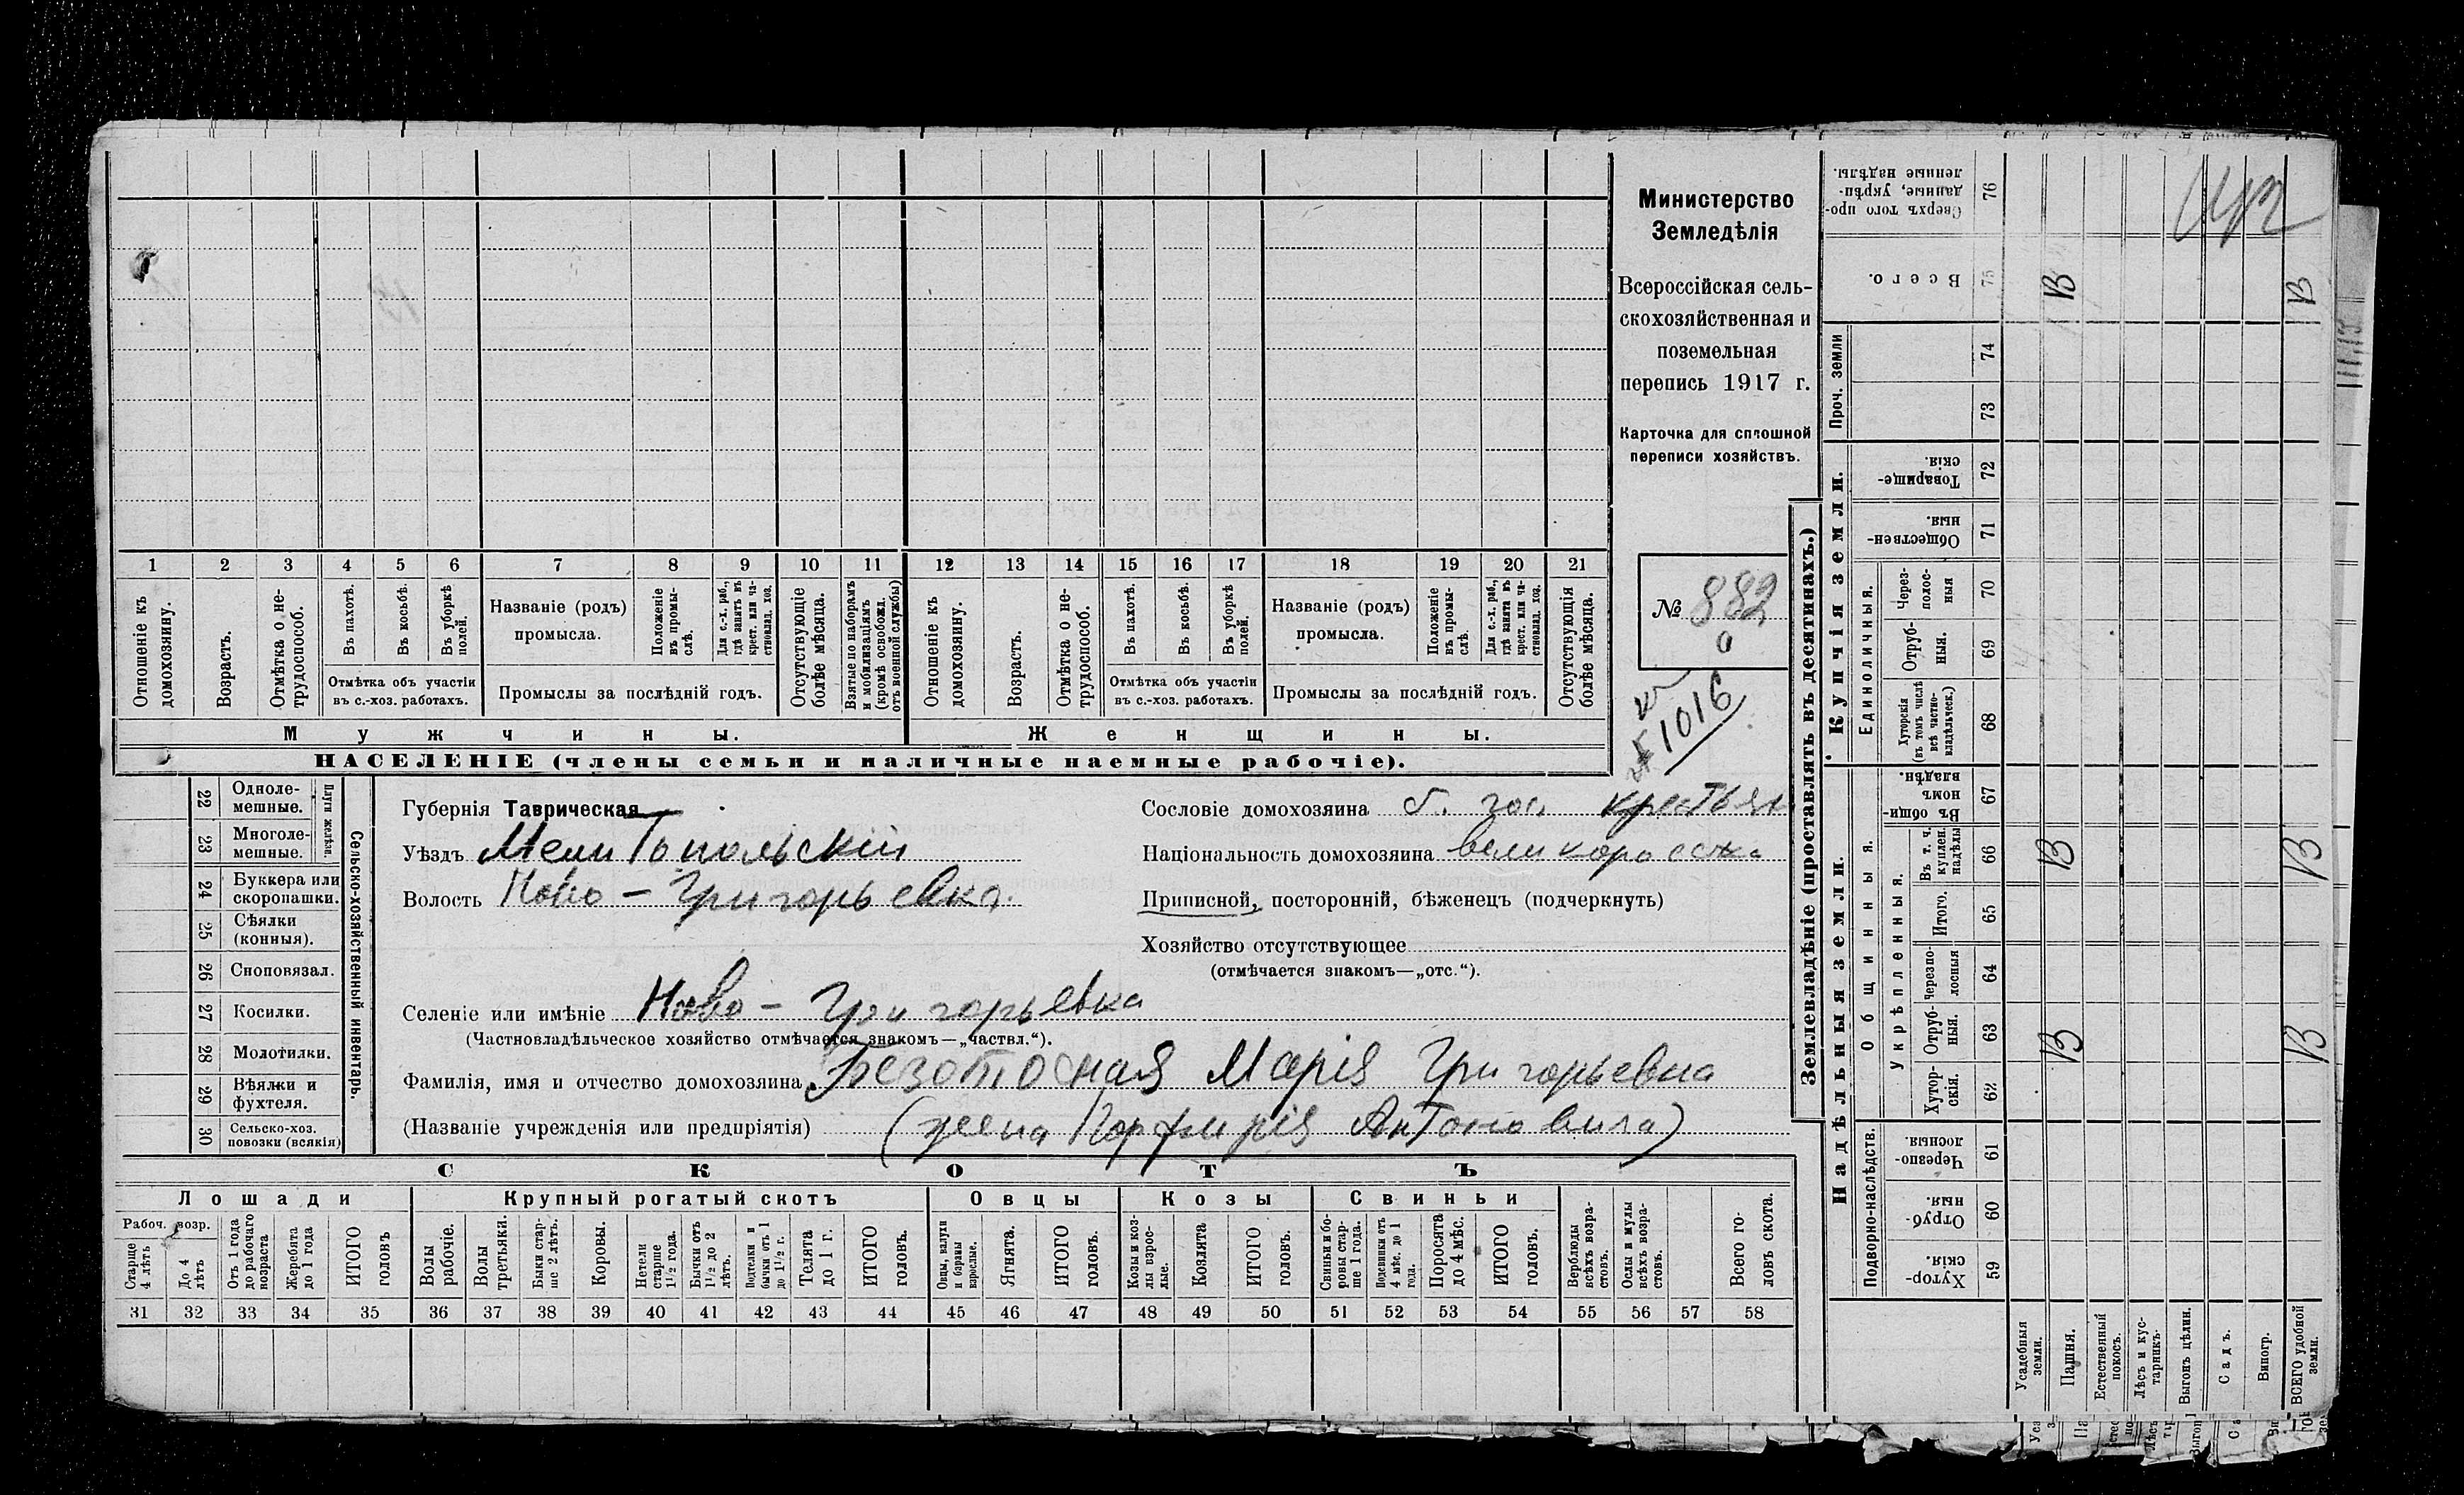 Министерство
Земледѣлія
Всероссійская сель-
скохозяйственная и
поземельная
перепись 1917 г.
Карточка для сплошной
переписи хозяйствъ.
№ 882
а
1016
1 2 3 4 5 6 7 8 9 10 11 12 13 14 15 16 17 18 19 20 21
Отношеніе къ домохозяину.
Возрастъ.
Отмѣтка о не-трудоспособ.
Въ пахотѣ.
Въ косьбѣ.
Въ уборкѣ полей.
Отмѣтка объ участіи
въ с.-хоз. работахъ.
Названіе (родъ)
промысла.
Положеніе въ промы-слѣ.
Для с.-х. раб., гдѣ занятъ въ крест. или ча-стновлад. хоз.
Промыслы за послѣдній годъ.
Отсутствующіе болѣе мѣсяца.
Взятые по наборамъ и мобилизаціямъ (кромѣ освобожд. отъ военной службы)
Отношеніе къ домохозяину.
Возрастъ.
Отмѣтка о не-трудоспособ.
Въ пахотѣ.
Въ косьбѣ.
Въ уборкѣ полей.
Отмѣтка объ участіи
въ с.-хоз. работахъ.
Названіе (родъ)
промысла.
Положеніе въ промы-слѣ.
Для с.-х. раб., гдѣ занята въ крест. или ча-стновлад. хоз.
Промыслы за послѣдній годъ.
Отсутствующія болѣе мѣсяца.
Мужчины.
Женщины.
НАСЕЛЕНІЕ (члены семьи и наличные наемные рабочіе).
22 Одноле-мешные.
23 Многоле-мешные.
Плуги желѣзн.
24 Буккера или скоропашки.
25 Сѣялки (конныя).
26 Сноповязал.
27 Косилки.
28 Молотилки.
29 Вѣялки и фухтеля.
30 Сельско-хоз. повозки (всякія)
Сельско-хозяйственный инвентарь.
Губернія Таврическая
Уѣздъ Мелитопольскій
Волость Ново-Григорьевка.
Селеніе или имѣніе Ново-Григорьевка
(Частновладѣльческое хозяйство отмѣчается знакомъ—„частвл.“).
Фамилія, имя и отчество домохозяина Безотосная Марія Григорьевна
(Названіе учрежденія или предпріятія) (жена Порфирія Антоновича)
Сословіе домохозяина б. гос. крестьян
Національность домохозяина великоросска
Приписной, посторонній, бѣженецъ (подчеркнуть)
Хозяйство отсутствующее
(отмѣчается знакомъ—„отс.“).
СКОТЪ
Лошади
Рабоч. возр.
Старше 4 лѣтъ
До 4 лѣтъ
Отъ 1 года до рабочаго возраста
Жеребята до 1 года
ИТОГО головъ
Крупный рогатый скотъ
Волы рабочіе.
Волы третьяки.
Быки стар-ше 2 лѣтъ.
Коровы.
Нетели старше 1½ года.
Бычки отъ 1½ до 2 лѣтъ.
Подтелки и бычки отъ 1 до 1½ г.
Телята до 1 г.
ИТОГО головъ.
Овцы
Овцы, валухи и бараны взрослые.
Ягнята.
ИТОГО головъ.
Козы
Козы и коз-лы взрос-лые.
Козлята
ИТОГО головъ.
Свиньи
Свиньи и бо-ровы стар-ше 1 года.
Подсвинки отъ 4 мѣс. до 1 года.
Поросята до 4 мѣс.
ИТОГО головъ.
Верблюды всѣхъ возра-стовъ.
Ослы и мулы всѣхъ возра-стовъ.
Всего го-ловъ скота.
31 32 33 34 35 36 37 38 39 40 41 42 43 44 45 46 47 48 49 50 51 52 53 54 55 56 57 58
Землевладѣніе (проставлять въ десятинахъ.)
Сверхъ того про-данные, укрѣп-ленные надѣлы. 76
Всего. 75 В В
Проч. земли
74
73
Купчія земли.
Товарище-скія. 72
Обществен-ныя. 71
Единоличныя.
Через-полос-ныя 70
Отруб-ныя. 69
Хуторскія (въ томъ числѣ всѣ частно-владѣльческ.) 68
Надѣльныя земли.
Общинныя.
Въ общи-номъ владѣн. 67
Укрѣпленныя.
Въ т. ч. куплен. надѣлы 66 В В
Итого. 65
Черезпо-лосныя 64
Отруб-ныя. 63 В В
Хутор-скія. 62
Подворно-наслѣдств.
Черезпо-лосныя. 61
Отруб-ныя. 60
Хутор-скія. 59
Усадебныя земли.
Пашня.
Естественный покосъ.
Лѣсъ и кус-тарникъ.
Выгонъ цѣлин.
Садъ.
Виногр.
ВСЕГО удобной земли.